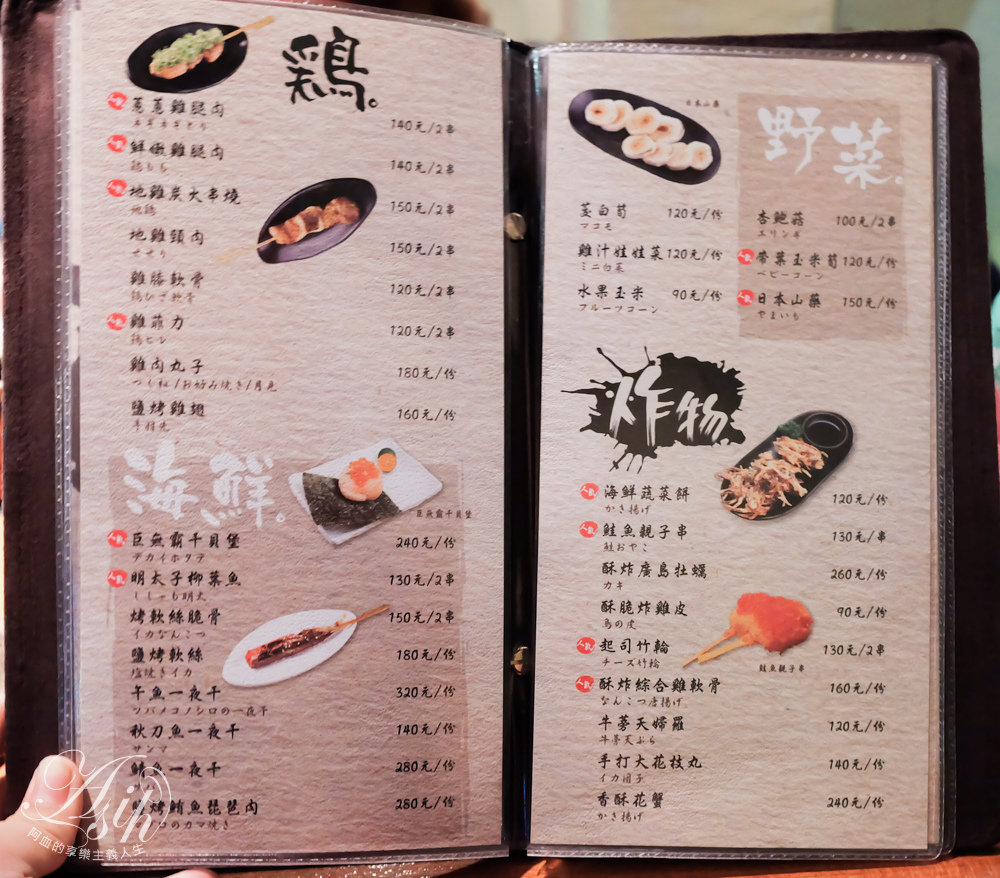 鶏。
人氣 蔥蔥雞腿肉
ネギネギとり
140元/2串
人氣 鮮嫩雞腿肉
鶏もも
140元/2串
人氣 地雞炭火串燒
地鶏
150元/2串
地雞頸肉
せせり
150元/2串
雞膝軟骨
鶏ひざ軟骨
120元/2串
人氣 雞菲力
鶏ヒレ
120元/2串
雞肉丸子
つくね/お好み焼き/月見
180元/份
鹽烤雞翅
手羽先
160元/份
海鮮。
巨無霸干貝堡
人氣 巨無霸干貝堡
デカイホタテ
240元/份
人氣 明太子柳葉魚
ししゃも明太
130元/2串
烤軟絲脆骨
イカなんこつ
150元/2串
鹽烤軟絲
塩焼きイカ
180元/份
午魚一夜干
ツバメコノシロの一夜干
320元/份
秋刀魚一夜干
サンマ
140元/份
鯖魚一夜干
280元/份
鹽烤鮪魚琵琶肉
のカマ焼き
280元/份
日本山藥
野菜。
茭白筍 120元/份
マコモ
雞汁娃娃菜 120元/份
ミニ白菜
水果玉米 90元/份
フルーツコーン
杏鮑菇 100元/2串
エリンギ
人氣 帶葉玉米筍 120元/份
ベビーコーン
人氣 日本山藥 150元/份
やまいも
炸物。
人氣 海鮮蔬菜餅
かき揚げ
120元/份
人氣 鮭魚親子串
鮭おやこ
130元/串
酥炸廣島牡蠣
カキ
260元/份
酥脆炸雞皮
鳥の皮
90元/份
人氣 起司竹輪
チーズ竹輪
130元/2串
鮭魚親子串
人氣 酥炸綜合雞軟骨
なんこつ唐揚げ
160元/份
牛蒡天婦羅
牛蒡天ぷら
120元/份
手打大花枝丸
イカ団子
140元/份
香酥花蟹
かき揚げ
240元/份
Asih
阿血的享樂主義人生